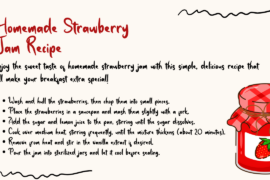 Homemade Strawberry
Jam Recipe
njoy the sweet taste of homemade strawberry jam with this simple, delicious recipe that
ll make your breakfast extra special!
Wash and hull the strawberries, then chop them into small pieces.
Place the strawberries in a saucepan and mash them slightly with a fork.
Add the sugar and lemon juice to the pan, stirring until the sugar dissolves.
Cook over medium heat, stirring frequently, until the mixture thickens (about 20 minutes).
Remove from heat and stir in the vanilla extract if desired.
Pour the jam into sterilized jars and let it cool before sealing.